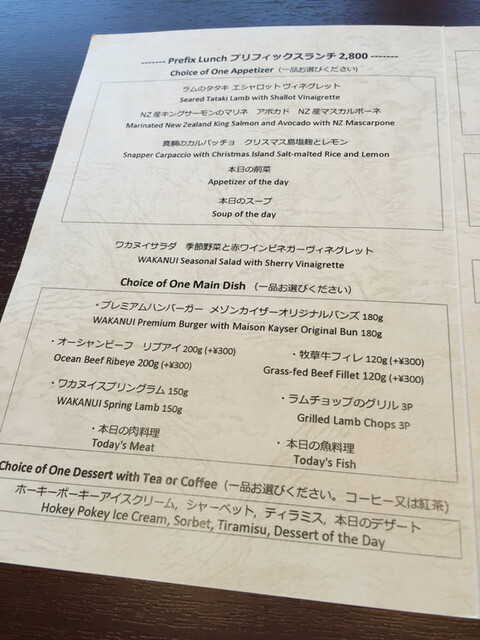 ------- Prefix Lunch プリフィックスランチ 2,800 -------
Choice of One Appetizer（一品お選びください）
ラムのタタキ エシャロット ヴィネグレット
Seared Tataki Lamb with Shallot Vinaigrette
NZ産キングサーモンのマリネ　アボカド　NZ産マスカルポーネ
Marinated New Zealand King Salmon and Avocado with NZ Mascarpone
真鯛のカルパッチョ　クリスマス島塩麹とレモン
Snapper Carpaccio with Christmas Island Salt-malted Rice and Lemon
本日の前菜
Appetizer of the day
本日のスープ
Soup of the day
ワカヌイサラダ　季節野菜と赤ワインビネガーヴィネグレット
WAKANUI Seasonal Salad with Sherry Vinaigrette
Choice of One Main Dish （一品お選びください）
・プレミアムハンバーガー　メゾンカイザーオリジナルバンズ 180g
WAKANUI Premium Burger with Maison Kayser Original Bun 180g
・オーシャンビーフ　リブアイ 200g (+¥300)
Ocean Beef Ribeye 200g (+¥300)
・牧草牛フィレ 120g (+¥300)
Grass-fed Beef Fillet 120g (+¥300)
・ワカヌイスプリングラム 150g
WAKANUI Spring Lamb 150g
・ラムチョップのグリル 3P
Grilled Lamb Chops 3P
・本日の肉料理
Today's Meat
・本日の魚料理
Today's Fish
Choice of One Dessert with Tea or Coffee（一品お選びください。 コーヒー又は紅茶）
ホーキーポーキーアイスクリーム, シャーベット, ティラミス, 本日のデザート
Hokey Pokey Ice Cream, Sorbet, Tiramisu, Dessert of the Day